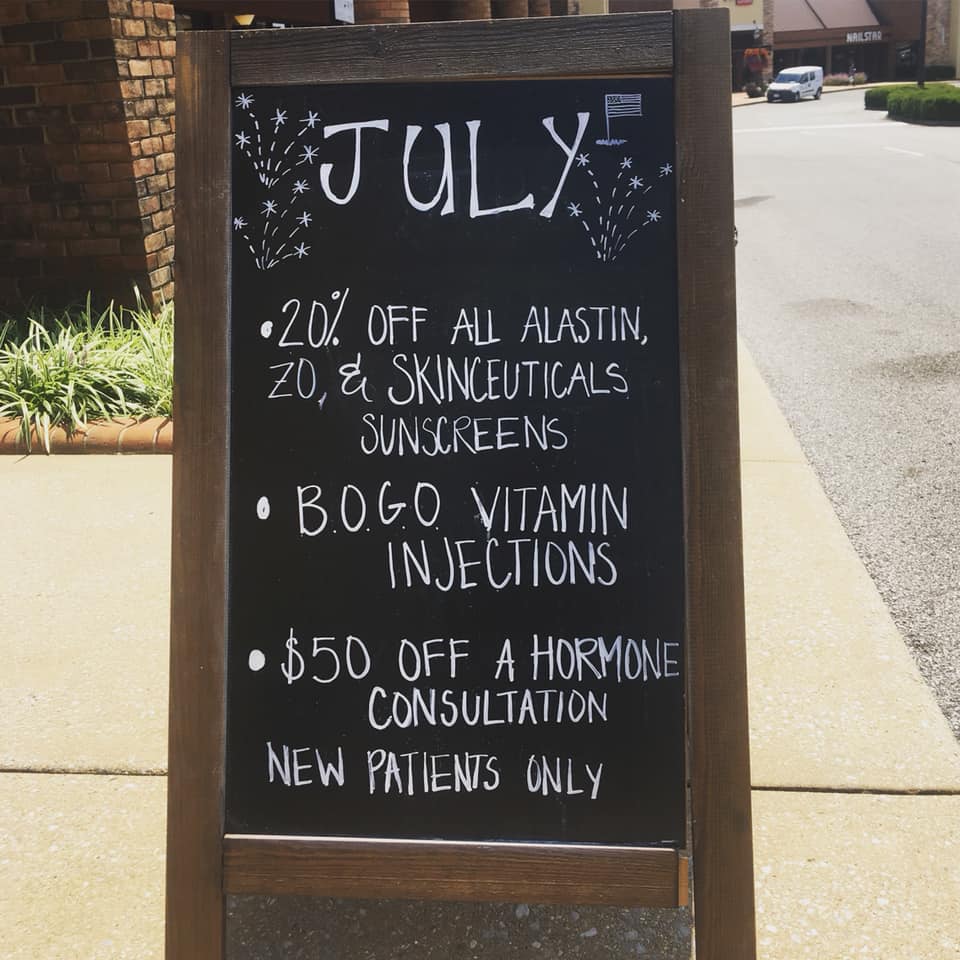 NAILSTAR
JULY
•20% OFF ALL ALASTIN,
ZO, & SKINCEUTICALS
SUNSCREENS
• B.O.G.O. VITAMIN
INJECTIONS
• $50 OFF A HORMONE
CONSULTATION
NEW PATIENTS ONLY